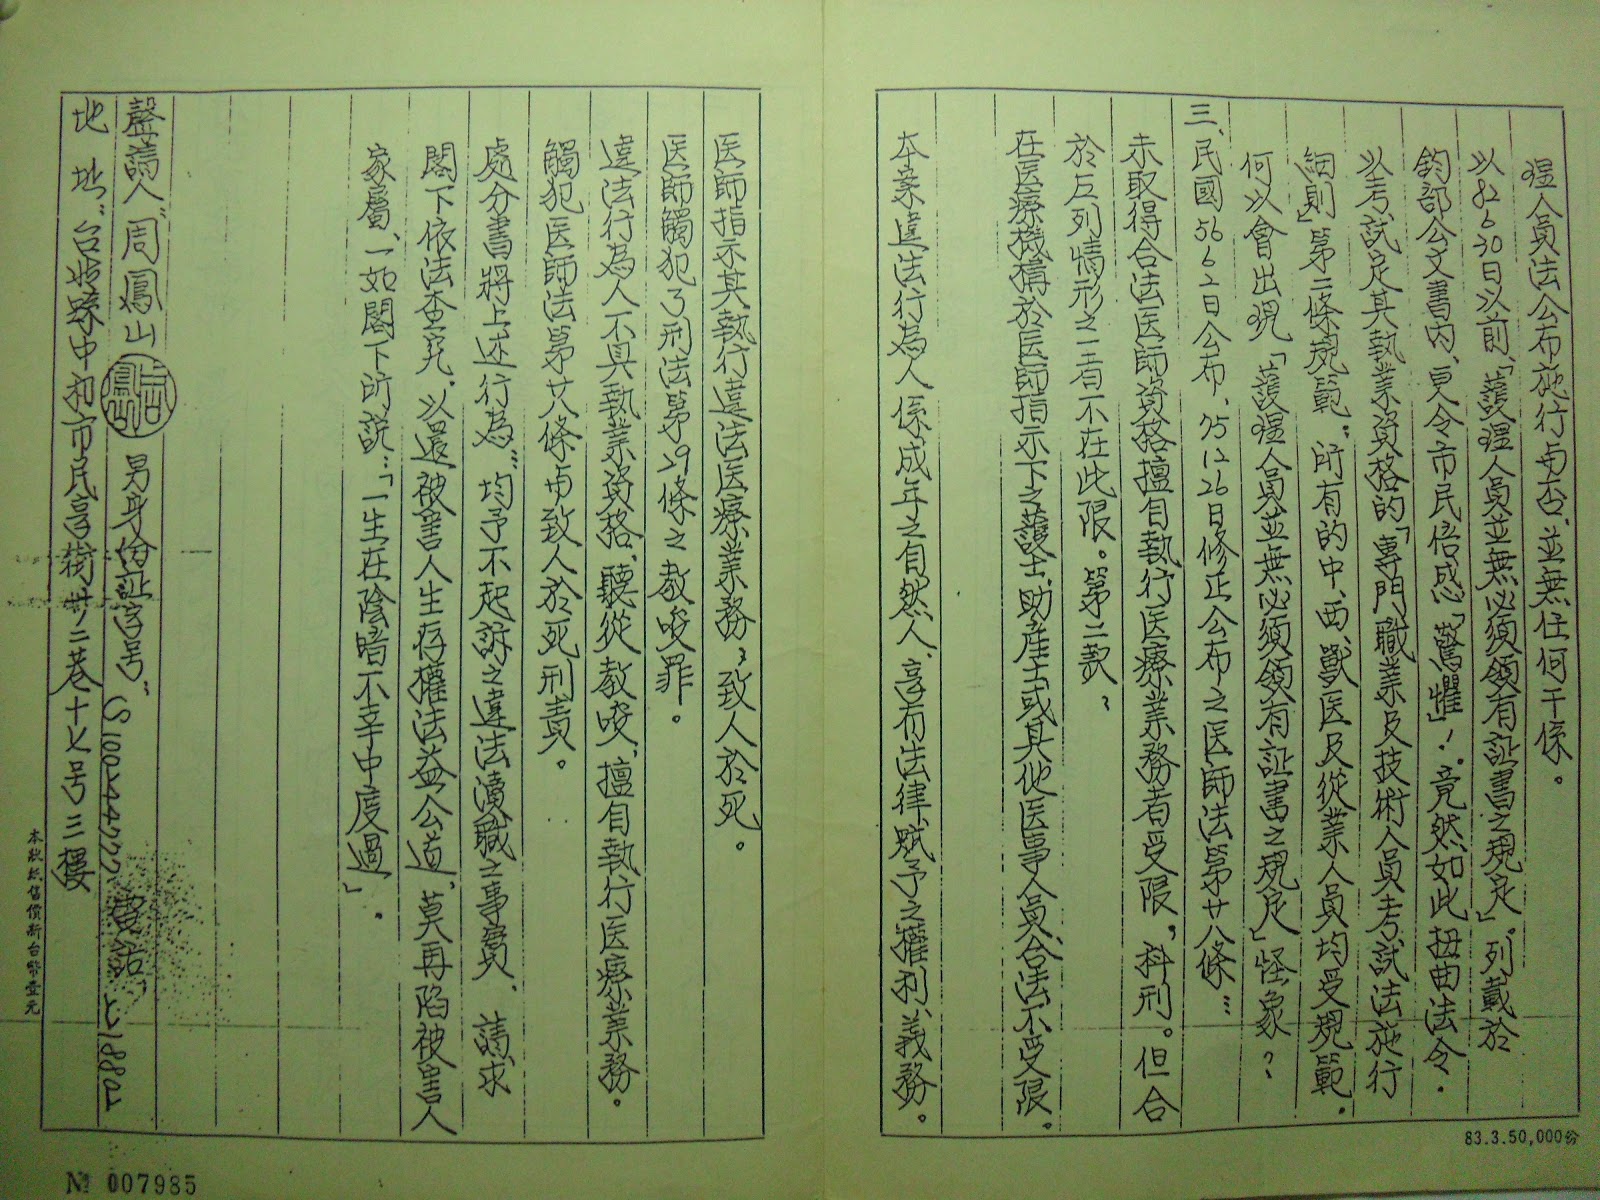 理人員法公布施行與否、並無任何干係。
以82630日以前,「護理人員並無必須領有証書之規定」。列載於
鈞部公文書內、更令市民倍感「驚懼」！竟然如此扭曲法令.
以考試定其執業資格的「專門職業及技術人員考試法施行
細則」第二條規範:所有的中、西、獸医及從業人員均受規範.
何以會出現「護理人員並無必須領有証書之規定」怪象?
三、民國5662日公布、751226日修正公布之医師法第廿八條:
未取得合法医師資格擅自執行医療業務者受限,科刑。但合
於左列情形之一者不在此限。第二款:
在医療機構於医師指示下之護士、助產士或其他医事人員、合法不受限。
本案違法行為人係成年之自然人、享有法律賦予之權利、義務。
医師指示其執行違法医療業務;致人於死。
医師觸犯了刑法第29條之教唆罪。
違法行為人不具執業資格,聽從教唆,擅自執行医療業務。
觸犯医師法第廿八條與致人於死刑責。
處分書將上述行為:均予不起訴之違法瀆職之事實、請求
閣下依法查究,以還被害人生存權法益公道,莫再陷被害人
家屬、一如閣下所說:「一生在陰暗不幸中度過」.
聲請人:周鳳山 男身份証字号: S100444222 電話:
地址:台北縣中和市民享街卅二巷十七号三樓
本狀紙售價新台幣壹元
83.3.50,000份
№ 007985